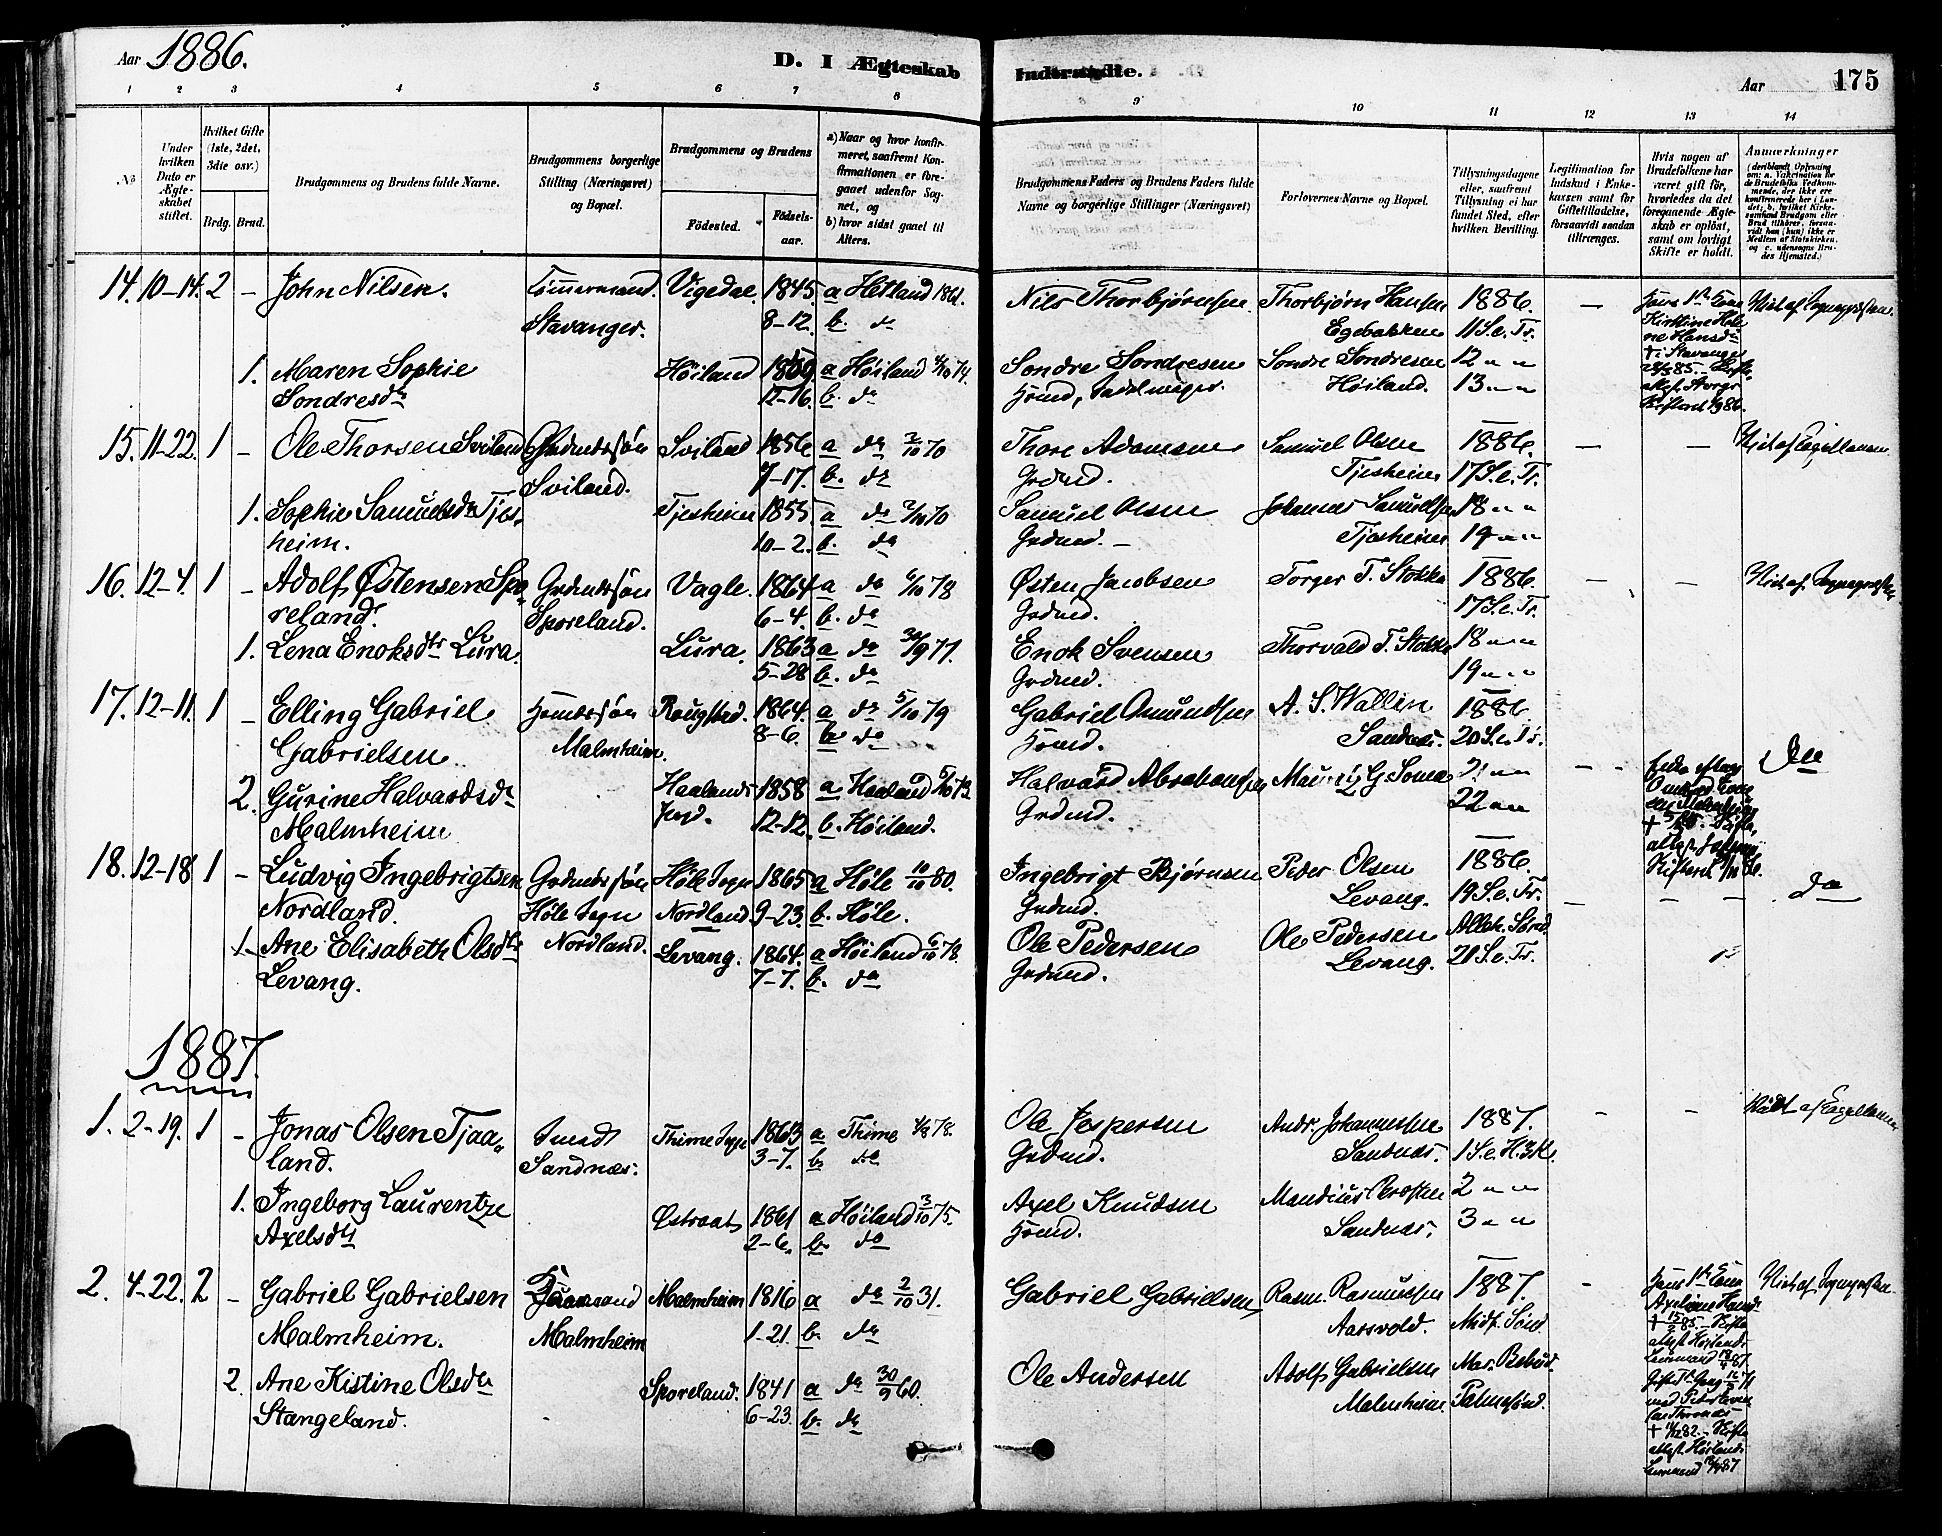 Aar 1886.
D. I Ægteskab Indtraadte.
Aar 175
1 2 3 4 5 6 7 8 9 10 11 12 13 14
No
Under hvilken Dato er Ægteskabet stiftet.
Hvilket Gifte (1ste, 2det, 3die osv.)
Brdg. Brud.
Brudgommens og Brudens fulde Navne.
Brudgommens borgerlige Stilling (Næringsvei) og Bopæl.
Brudgommens og Brudens
Fødested. Fødsels-aar.
a) Naar og hvor konfirmeret, saafremt Konfirmationen er foregaaet udenfor Sognet, og
b) hvor sidst gaaet til Alters.
Brudgommens Faders og Brudens Faders fulde Navne og borgerlige Stillinger (Næringsvei)
Forlovernes Navne og Bopæl.
Tillysningsdagene eller, saafremt Tillysning ei har fundet Sted, efter hvilken Bevilling.
Legitimation for Indskud i Enkekassen samt for Giftetilladelse, forsaavidt saadan tiltrænges.
Hvis nogen af Brudefolkene har været gift før, hvorledes da det foregaaende Ægteskab er opløst, samt om lovligt Skifte er holdt.
Anmærkninger
14. 10-14. 2 - John Nilsen. Tømmermand. Vigedal. 1845 a Hetland 1861. Nils Thorbjørnsen Thorbjørn Hansen 1886. -
Stavanger. 8-12. b. do Egebakken 11 S. e. Tr.
1. Maren Sophie Høiland 1859. a Høiland 4/10 74. Sondre Sondresen Sondre Sondresen 12 " "
Sondresdr 12-16. b. do Høiland. 13 " "
15. 11-22. 1 - Ole Thorsen Sviland Grdmdssøn Sviland 1856 a do 2/10 70 Thore Adamsen Samuel Olsen 1886. - -
Sviland. 7-17. b. do Grdmd. Tjesheim 17 S. e. Tr.
1. Sophie Samuelsdr Tjes- Tjesheim 1855. a do 2/10 70 Samuel Olsen Johannes Samuelsen 18 " "
heim. 10-2. b. do Grdmd. - Tjesheim 19 " "
16. 12-4. 1 - Adolf Østensen Spo- Grdmdssøn Vagle. 1864 a do 6/10 78 Østen Jacobsen Torger T. Stokka 1886. - -
reland. Sporeland. 6-4. b. do Grdmd. 17 S. e. Tr.
1. Lena Enoksdtr Lura. Lura. 1863 a do 30/9 77. Enok Svensen Thorvald T. Stokka 18 " "
5-28 b. do Grdmd. 19 " "
17. 12-11. 1 - Elling Gabriel Hmdssøn Rougstad. 1864. a do 5/10 79 Gabriel Omundsen A. S. Wallin 1886
Gabrielsen. Malmheim. 8-6. b. do Hmd. Sandnæs. 20 S. e. Tr.
2. Gurine Halvardsdr Haalands 1858 a Haaland 5/10 73 Halvard Abrahamsen G. Soma 21 " " - - do
Malmheim 12-12. b. Høiland. Grdmd. 22 " "
18. 12-18 1 - Ludvig Ingebrigtsen Grdmdssøn Høle Sogn 1865 a Høle 10/10 80. Ingebrigt Bjørnsen Peder Olsen 1886. do
Nordland. Høle Sogn Nordland. 9-23. b. Høle. Grdmd. Levang. 19 S. e. Tr. - - -
1 Ane Elisabeth Olsdtr Nordland. Levang. 1864. a Høiland 6/10 78. Ole Pedersen Ole Pedersen Alleh. Sønd.
Levang. 7-7. b. do Grdmd. Levang. 20 S. e. Tr.
1887.
1. 2-19. 1 - Jonas Olsen Tjaa- Smed Thime Sogn 1863 a Thime 78. Ole Jespersen Andr. Johannessen 1887. - -
land. Sandnæs. 3-7. b. do Grdmd. Sandnæs. 1 S. e. H. 3 K.
1. Ingeborg Laurentze Østraat 1861 a Høiland 3/10 75. Axel Knudsen 2 " "
Axelsdtr 2-6. b. do Hmd. Sandnæs. 3 " "
2. 4-22. 2 - Gabriel Gabrielsen Malmheim 1816 a do 2/10 31. Gabriel Gabrielsen Rasm. Rasmussen 1887. -
Malmheim. Malmheim 1-21. b. do Aarsvold. Midf. Sønd.
2. Ane Kistine Olsdtr Sporeland. 1841 a do 30/9 60. Ole Andersen Adolf Gabrielsen Mar. Bebud.
Stangeland. 6-23. b. do Malmheim Palmesønd.